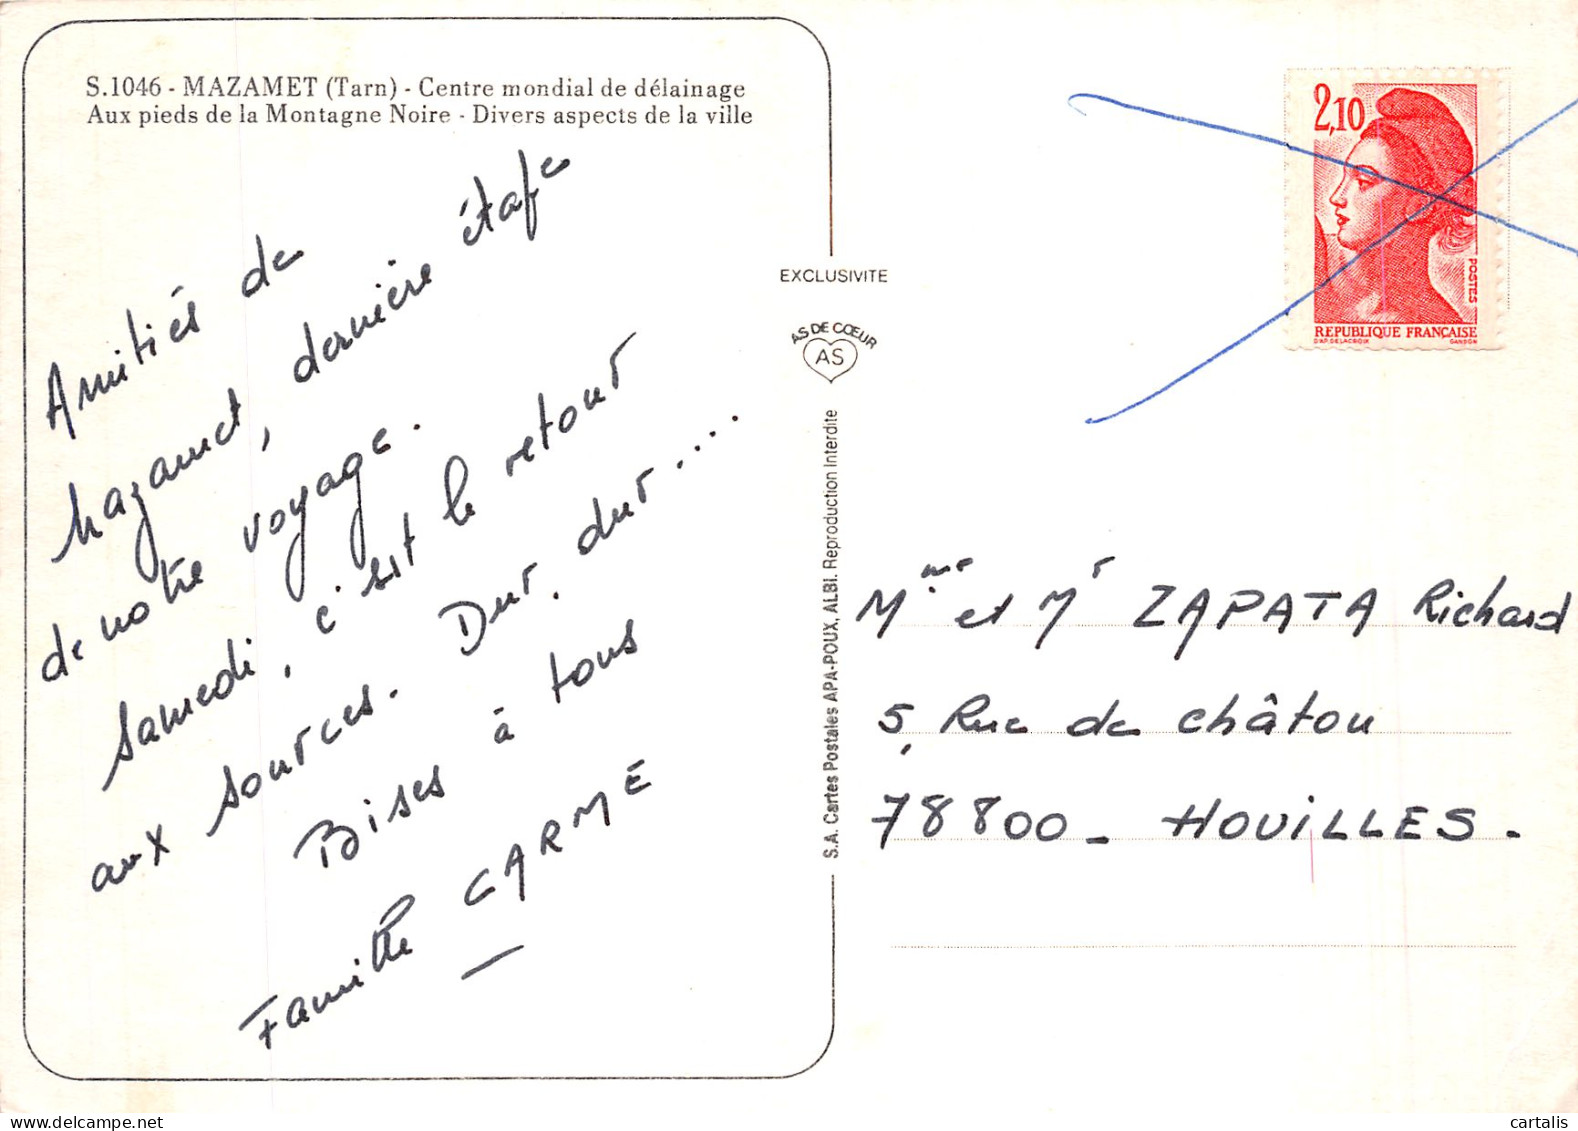 S.1046 - MAZAMET (Tarn) - Centre mondial de délainage
Aux pieds de la Montagne Noire - Divers aspects de la ville
Amitiés de
Mazamet, dernière étape
de notre voyage.
Samedi, c'est le retour
aux sources. Dur, dur....
Bises à tous
Famille CARME
EXCLUSIVITE
AS DE CŒUR
AS
S.A. Cartes Postales APA-POUX, ALBI. Reproduction Interdite
2,10
POSTES
REPUBLIQUE FRANÇAISE
D'AP. DELACROIX GANDON
Mme et Mr ZAPATA Richard
5, Rue de Châtou
78800 - HOUILLES -
cartalis